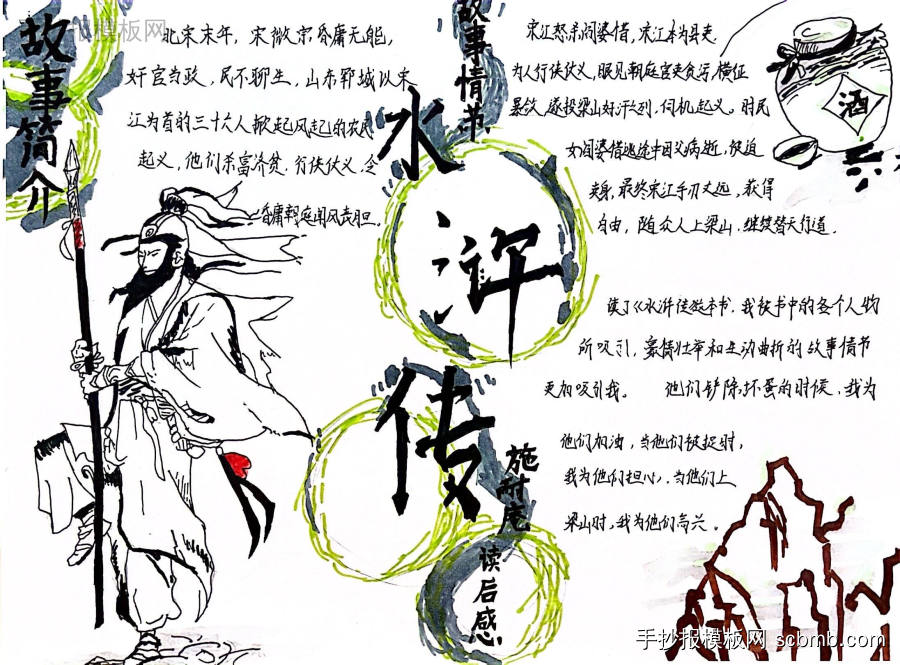 手抄报模板网
故事简介
北宋末年，宋徽宗昏庸无能，
奸官当政，民不聊生，山东郓城以宋
江为首的三十六人掀起风起的农民
起义，他们杀富济贫，行侠仗义，令
昏庸朝庭闻风丧胆。
水浒传
施耐庵
故事情节
宋江怒杀阎婆惜，宋江本为县吏
为人行侠仗义，眼见朝庭官吏贪污，横征
暴敛，遂投梁山好汉列，伺机起义。时民
女阎婆惜逃途中因父病逝，被迫
卖身，最终宋江手刃丈远，获得
自由，随众人上梁山，继续替天行道。
酒
读后感
读了《水浒传》这本书，我被书中的各个人物
所吸引，豪情壮举和生动曲折的故事情节
更加吸引我。 他们铲除坏蛋的时候，我为
他们加油，当他们被捉时，
我为他们担心，当他们上
梁山时，我为他们高兴。
手抄报模板网 scbmb.com